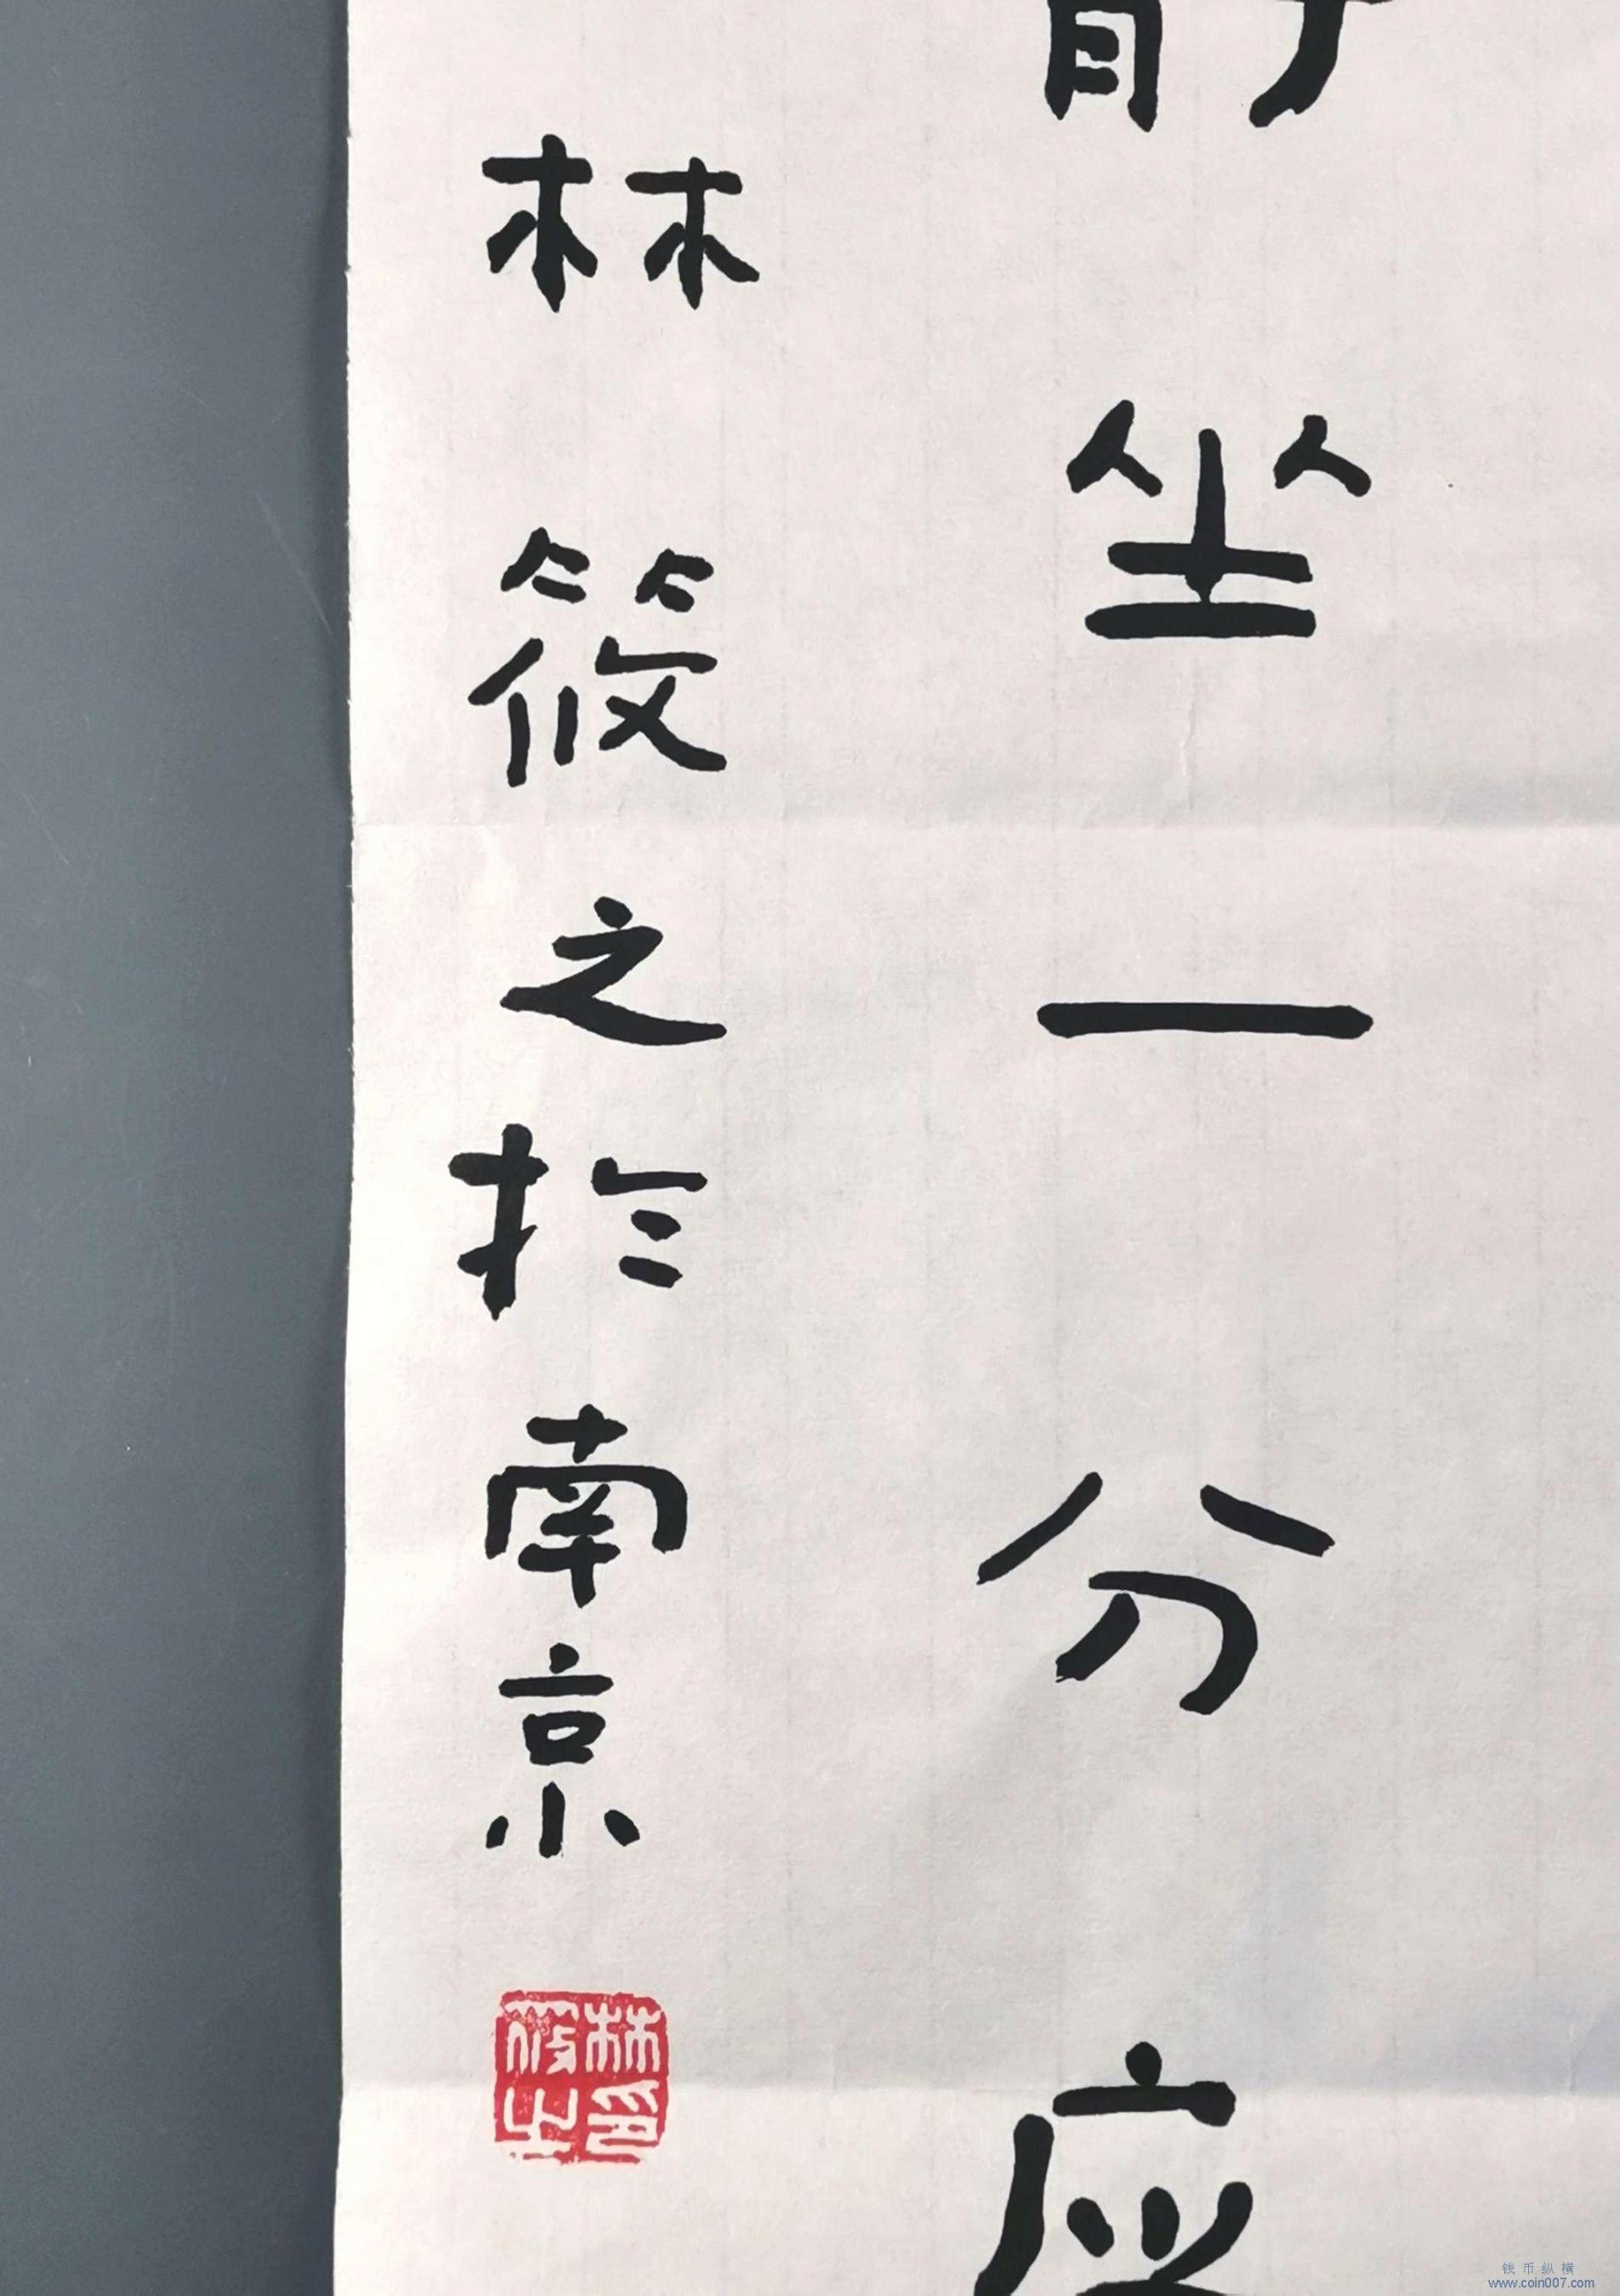 静坐一分应
林筱之於南京
林筱之印
钱币纵横
www.coin007.com